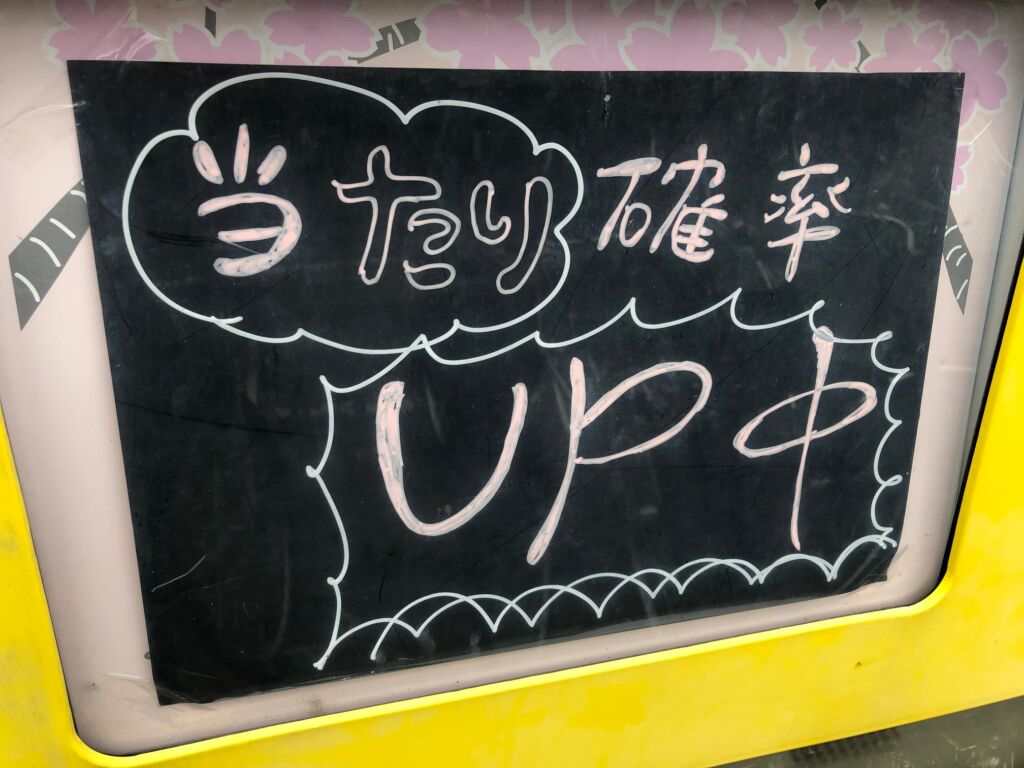 当たり確率
UP中